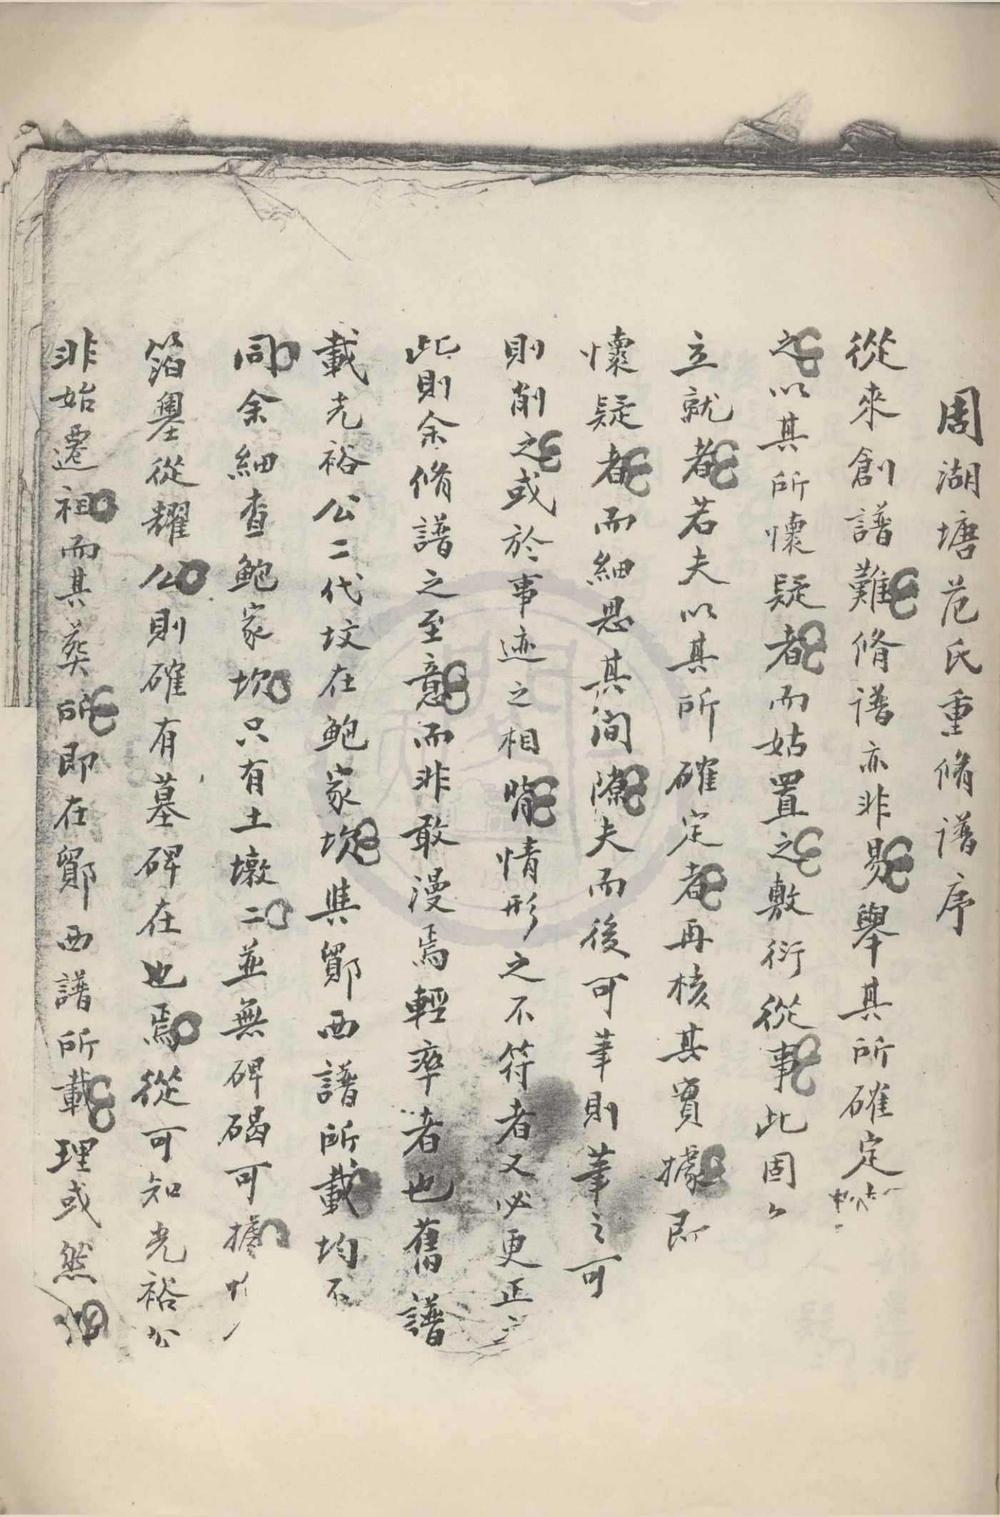 周湖塘范氏重脩譜序
從來創譜難脩譜亦非易舉其所確定
之以其所懷疑者而姑置之敷衍從事此固
立就者若夫以其所確定者再核其實據即
懷疑者而細思其間隙夫而後可筆則筆之可
則削之或於事迹之相背情形之不符者又必更正之
此則余脩譜之至意而非敢漫焉輕率者也舊譜
載光裕公二代坟在鮑家坎與鄮西譜所載均不
同余細查鮑家坎只有土墩二並無碑碣可據
箔墨從耀公則確有墓碑在也焉從可知光裕公
非始遷祖而其葬所即在鄮西譜所載理或然